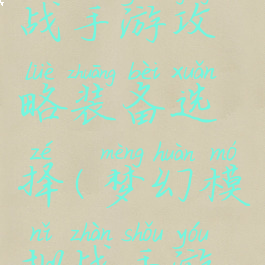 战手游攻
lüè zhuāng bèi xuǎn
略装备选
zé mèng huàn mó
择(梦幻模
nǐ zhàn shǒu yóu
拟战手游